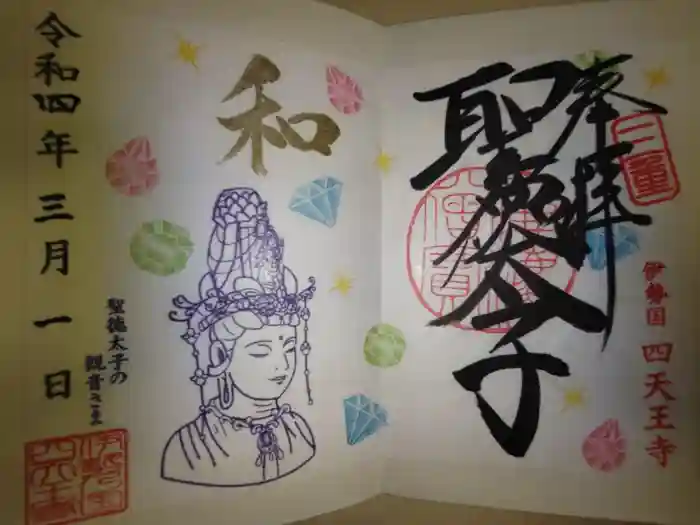 奉拝
聖徳太子
伊勢国 四天王寺
和
聖徳太子の
観音さま
令和四年三月一日